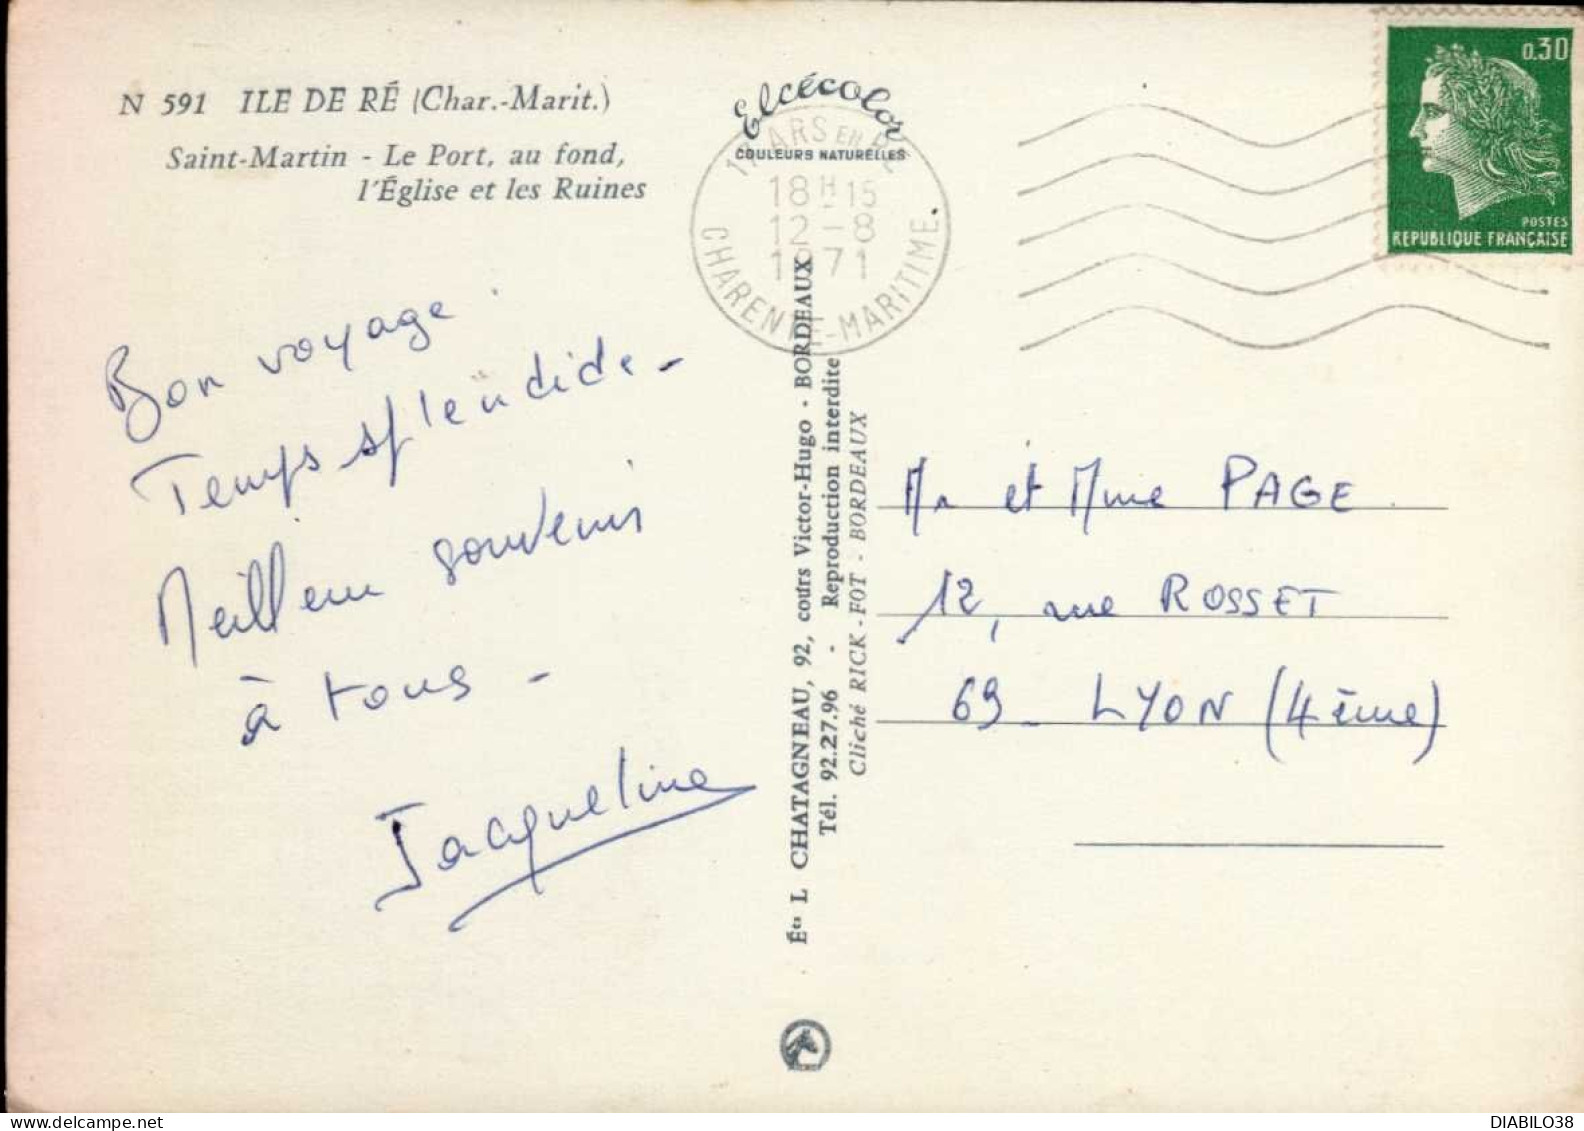 N 591 ILE DE RÉ (Char.-Marit.)
Saint-Martin - Le Port, au fond,
l'Église et les Ruines
Elcécolor
COULEURS NATURELLES
17 ARS EN RÉ
18H15
12-8
1971
CHARENTE-MARITIME
0,30
POSTES
REPUBLIQUE FRANÇAISE
Bon voyage
Temps splendide -
Meilleur souvenir
à tous -
Jacqueline
Éts L CHATAGNEAU, 92, cours Victor-Hugo - BORDEAUX
Tél. 92.27.96 - Reproduction interdite
Cliché RICK-FOT - BORDEAUX
Mr et Mme PAGE
12, rue ROSSET
69 - LYON (4ème)
DIABILO38